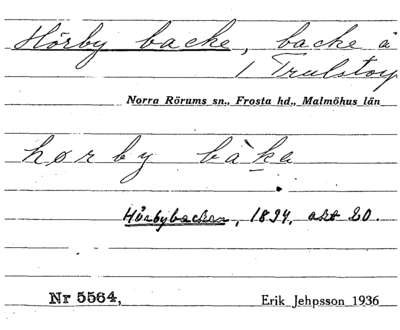 Hörby backe, backe å
1 Trulstorp
Norra Rörums sn., Frosta hd., Malmöhus län
hørby bàka
Hörbybacken, 1894, akt 20.
Nr 5564, Erik Jehpsson 1936